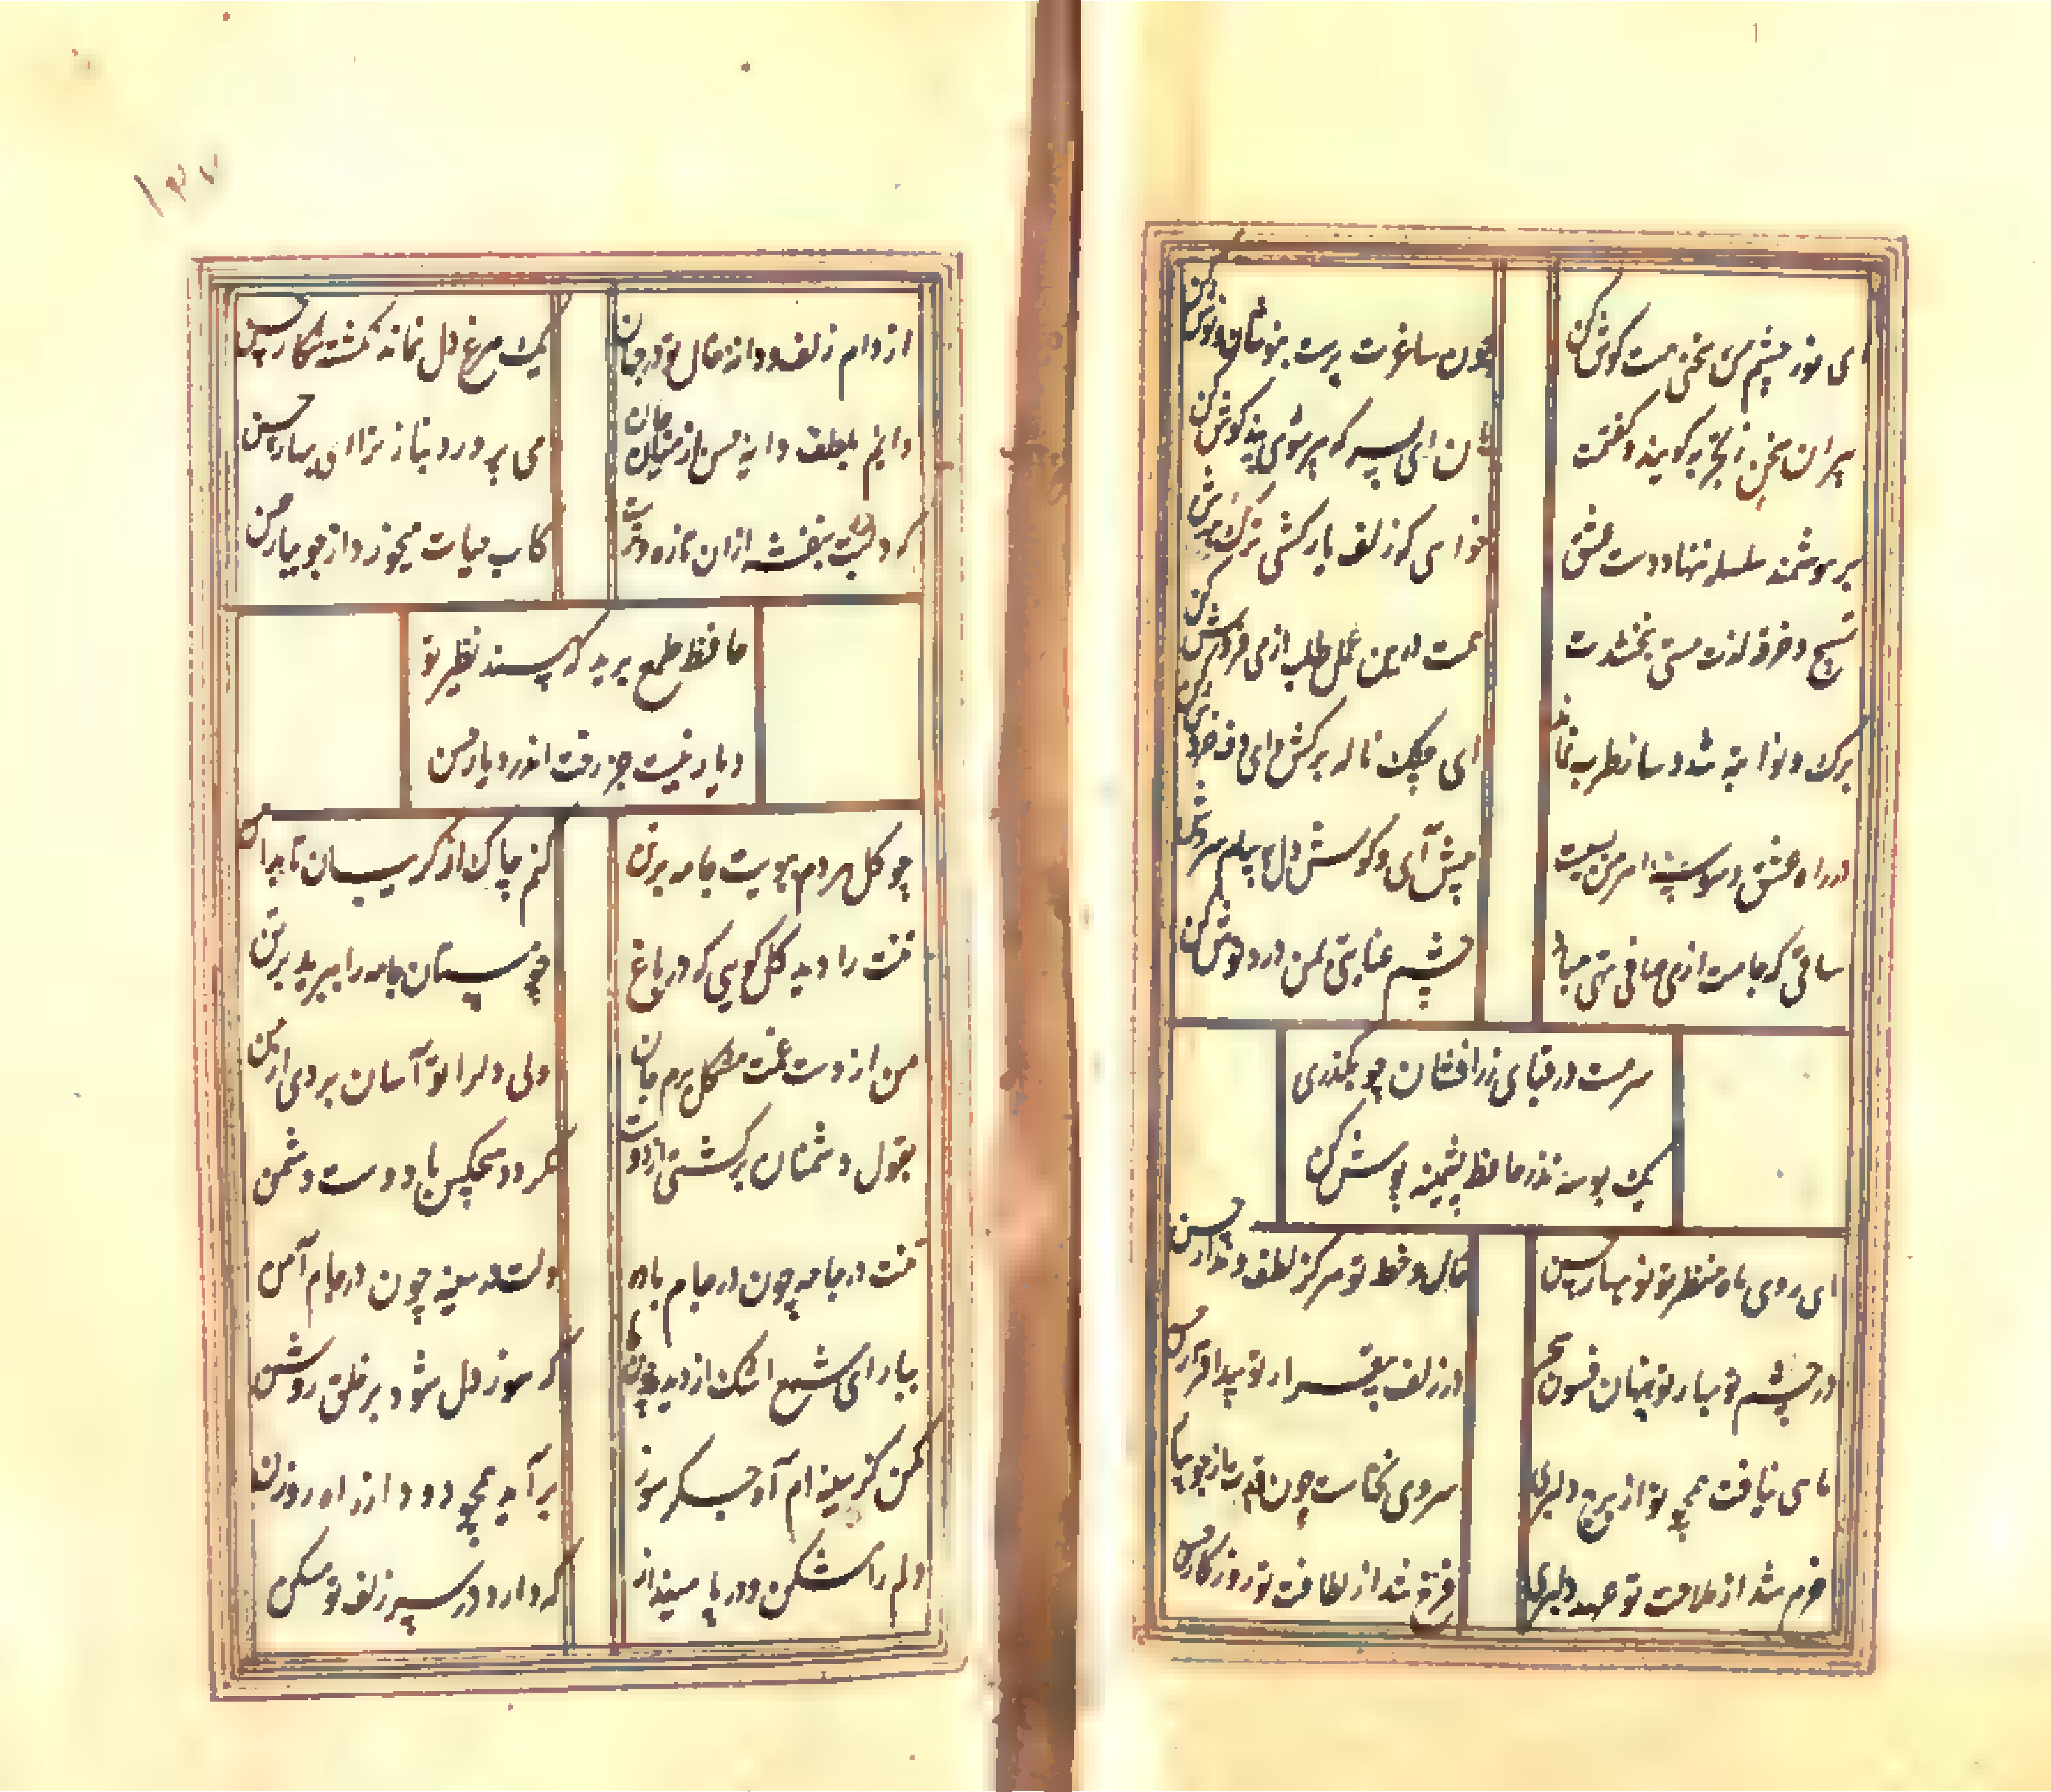 ای نور چشم من سخنی هست کوش کن
چون ساغرت پرست بنوشان و نوش کن
پیران سخن ز تجربه کویند و کفتمت
هان ای پسر که پیر شوی پند کوش کن
بر هوشمند سلسله ننهاد دست عشق
خواهی که زلف یار کشی ترک هوش کن
تسبیح و خرقه لذت مستی نبخشدت
همت درین عمل طلب از می فروش کن
برک و نوا تبه شد و ساز طرب نماند
ای چنک ناله برکش و ای دف خروش کن
در راه عشق وسوسه اهرمن بسیست
پیش آی و کوش دل به پیام سروش کن
ساقی که جامت از می صافی تهی مباد
چشم عنایتی بمن درد نوش کن
سرمست در قبای زرافشان چو بکذری
یک بوسه نذر حافظ پشمینه پوش کن
ای روی ماه منظر تو نوبهار حسن
خال و خط تو مرکز لطف و مدار حسن
در چشم پر خمار تو پنهان فسون سحر
در زلف بیقرار تو پیدا قرار حسن
ماهی نیافت همچو تو از برج دلبری
سروی نخاست چون قدت از جویبار
خرم شد از ملاحت تو عهد دلبری
فرخ شد از لطافت تو روزکار حسن
۱۳۷
از دام زلف و دانه خال تو در جهان
یک مرغ دل نماند نکشته شکار حسن
دایم بلطف دایه حسن از میان جان
می پرورد بناز ترا در کنار حسن
کرد لبت بنفشه ازان تازه و ترست
کاب حیات میخورد از جویبار حسن
حافظ طمع برید که بیند نظیر تو
دیار نیست جز رخت اندر دیار حسن
چو کل هر دم ببویت جامه بر تن
کنم چاک از کریبان تا بدامن
تنت را دید کل کویی که در باغ
چو مستان جامه را ببرید بر تن
من از دست غمت مشکل برم جان
ولی دل را تو آسان بردی از من
بقول دشمنان برکشتی از دوست
نکردد هیچکس با دوست دشمن
تنت در جامه چون در جام باده
دلت در سینه چون در جام آهن
ببار ای شمع اشک از دیده چون
که سوز دل شود بر خلق روشن
مکن کز سینه ام آه جکر سوز
برآید همچو دود از راه روزن
دلم را مشکن و در پا مینداز
که دارد در سر زلف تو مسکن